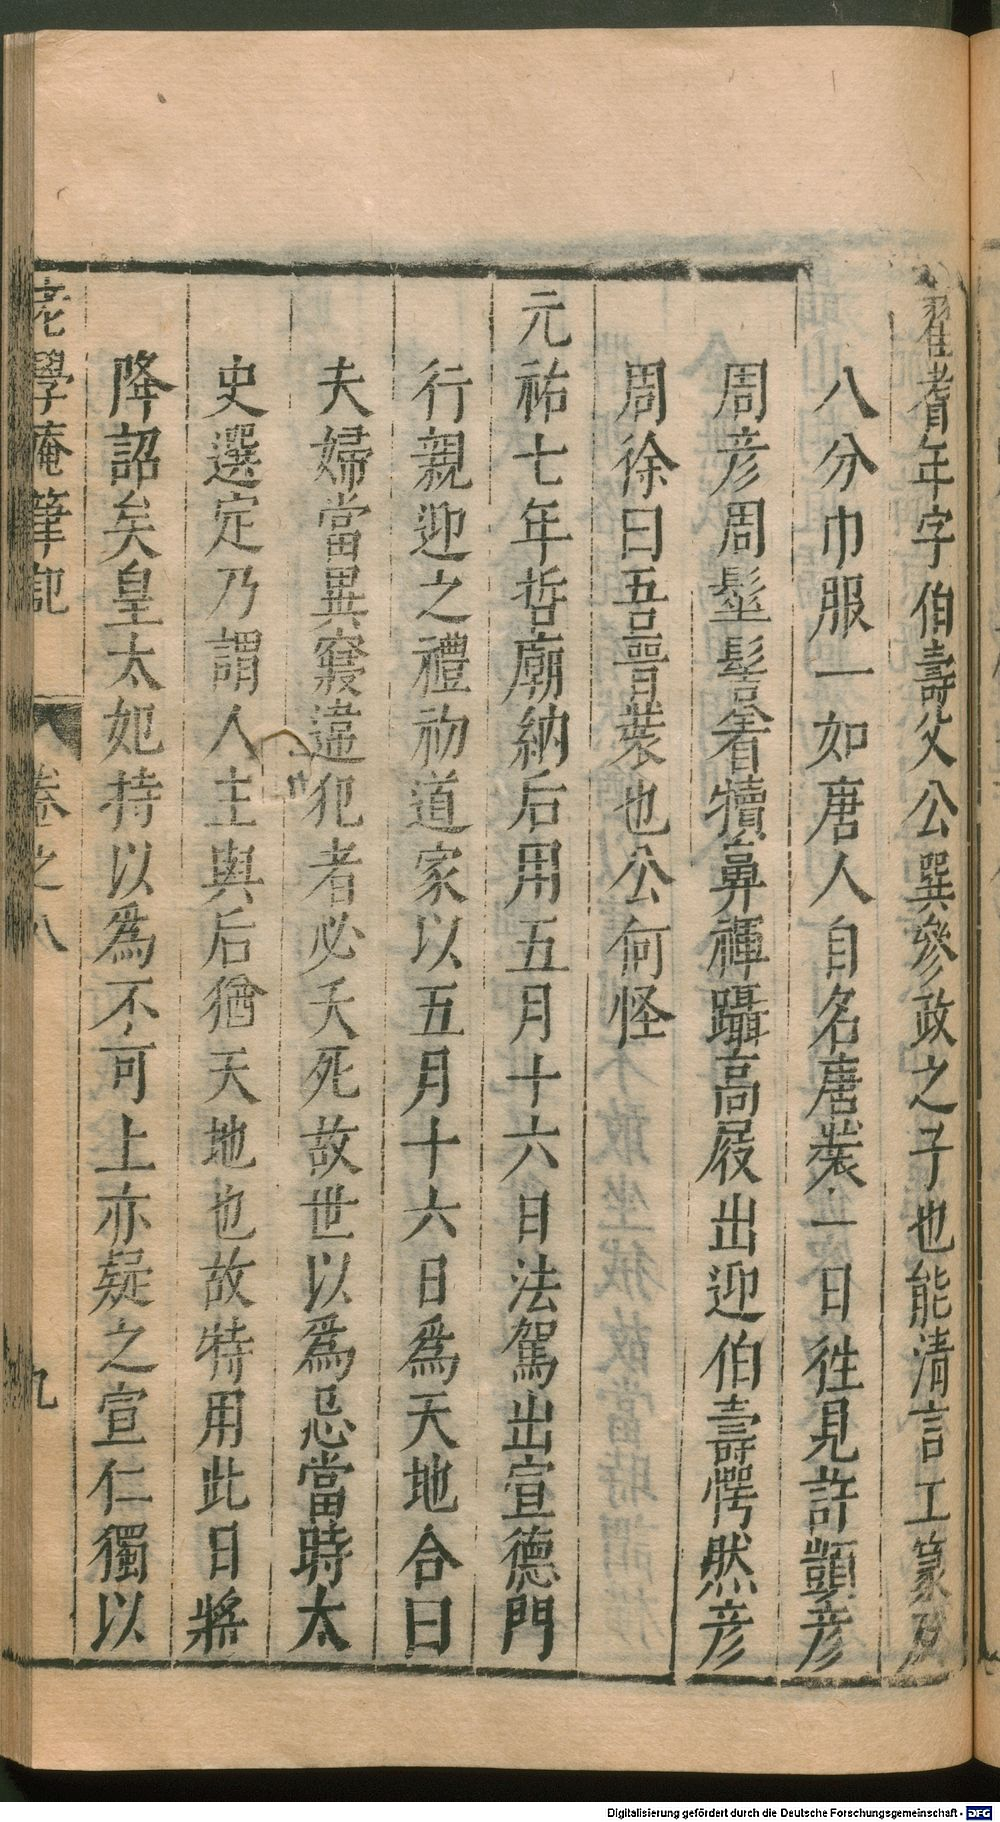 翟耆年字伯壽父公巽參政之子也能清言工篆及
八分巾服一如唐人自名唐裝一日徃見許顗彦
周彦周髽髻着犢鼻褌躡高屐出迎伯壽愕然彦
周徐曰吾晉裝也公何怪
元祐七年哲廟納后用五月十六日法駕出宣德門
行親迎之禮初道家以五月十六日爲天地合日
夫婦當異寢違犯者必夭死故世以爲忌當時太
史選定乃謂人主與后猶天地也故特用此日將
降詔矣皇太妃持以爲不可上亦疑之宣仁獨以
老學庵筆記 卷之八 九
Digitalisierung gefördert durch die Deutsche Forschungsgemeinschaft - DFG